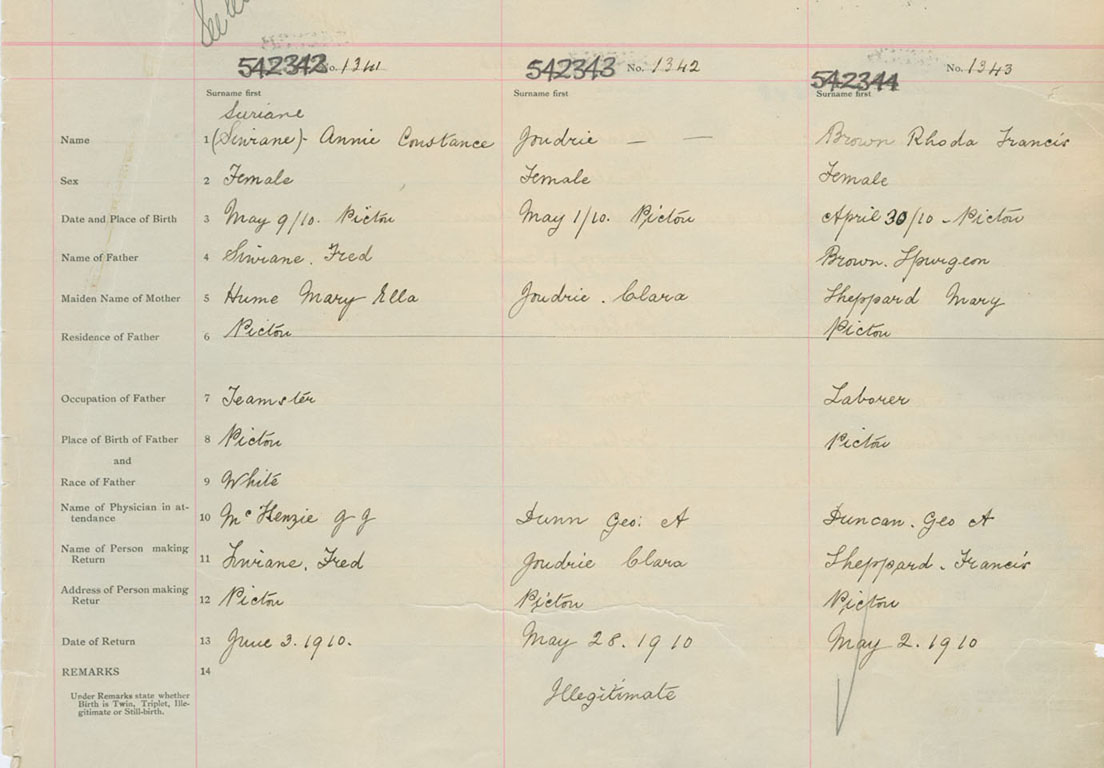 See
542342 No. 1341 542343 No. 1342 542344 No. 1343
Surname first Surname first Surname first
Suriane
Name 1 (Siwiane) - Annie Constance Joudrie — — Brown Rhoda Francis
Sex 2 Female Female Female
Date and Place of Birth 3 May 9/10. Pictou May 1/10. Pictou April 30/10 - Pictou
Name of Father 4 Siwiane. Fred Brown. Spurgeon
Maiden Name of Mother 5 Hume Mary Ella Joudrie. Clara Sheppard Mary
Residence of Father 6 Pictou Pictou
Occupation of Father 7 Teamster Laborer
Place of Birth of Father 8 Pictou Pictou
and
Race of Father 9 White
Name of Physician in at-
tendance 10 McKenzie G G Dunn Geo. A Duncan. Geo A
Name of Person making
Return 11 Siwiane. Fred Joudrie Clara Sheppard. Francis
Address of Person making
Retur 12 Pictou Pictou Pictou
Date of Return 13 June 3. 1910. May 28. 1910 May 2. 1910
REMARKS 14
Under Remarks state whether
Birth is Twin, Triplet, Ille-
gitimate or Still-birth.
Illegitimate